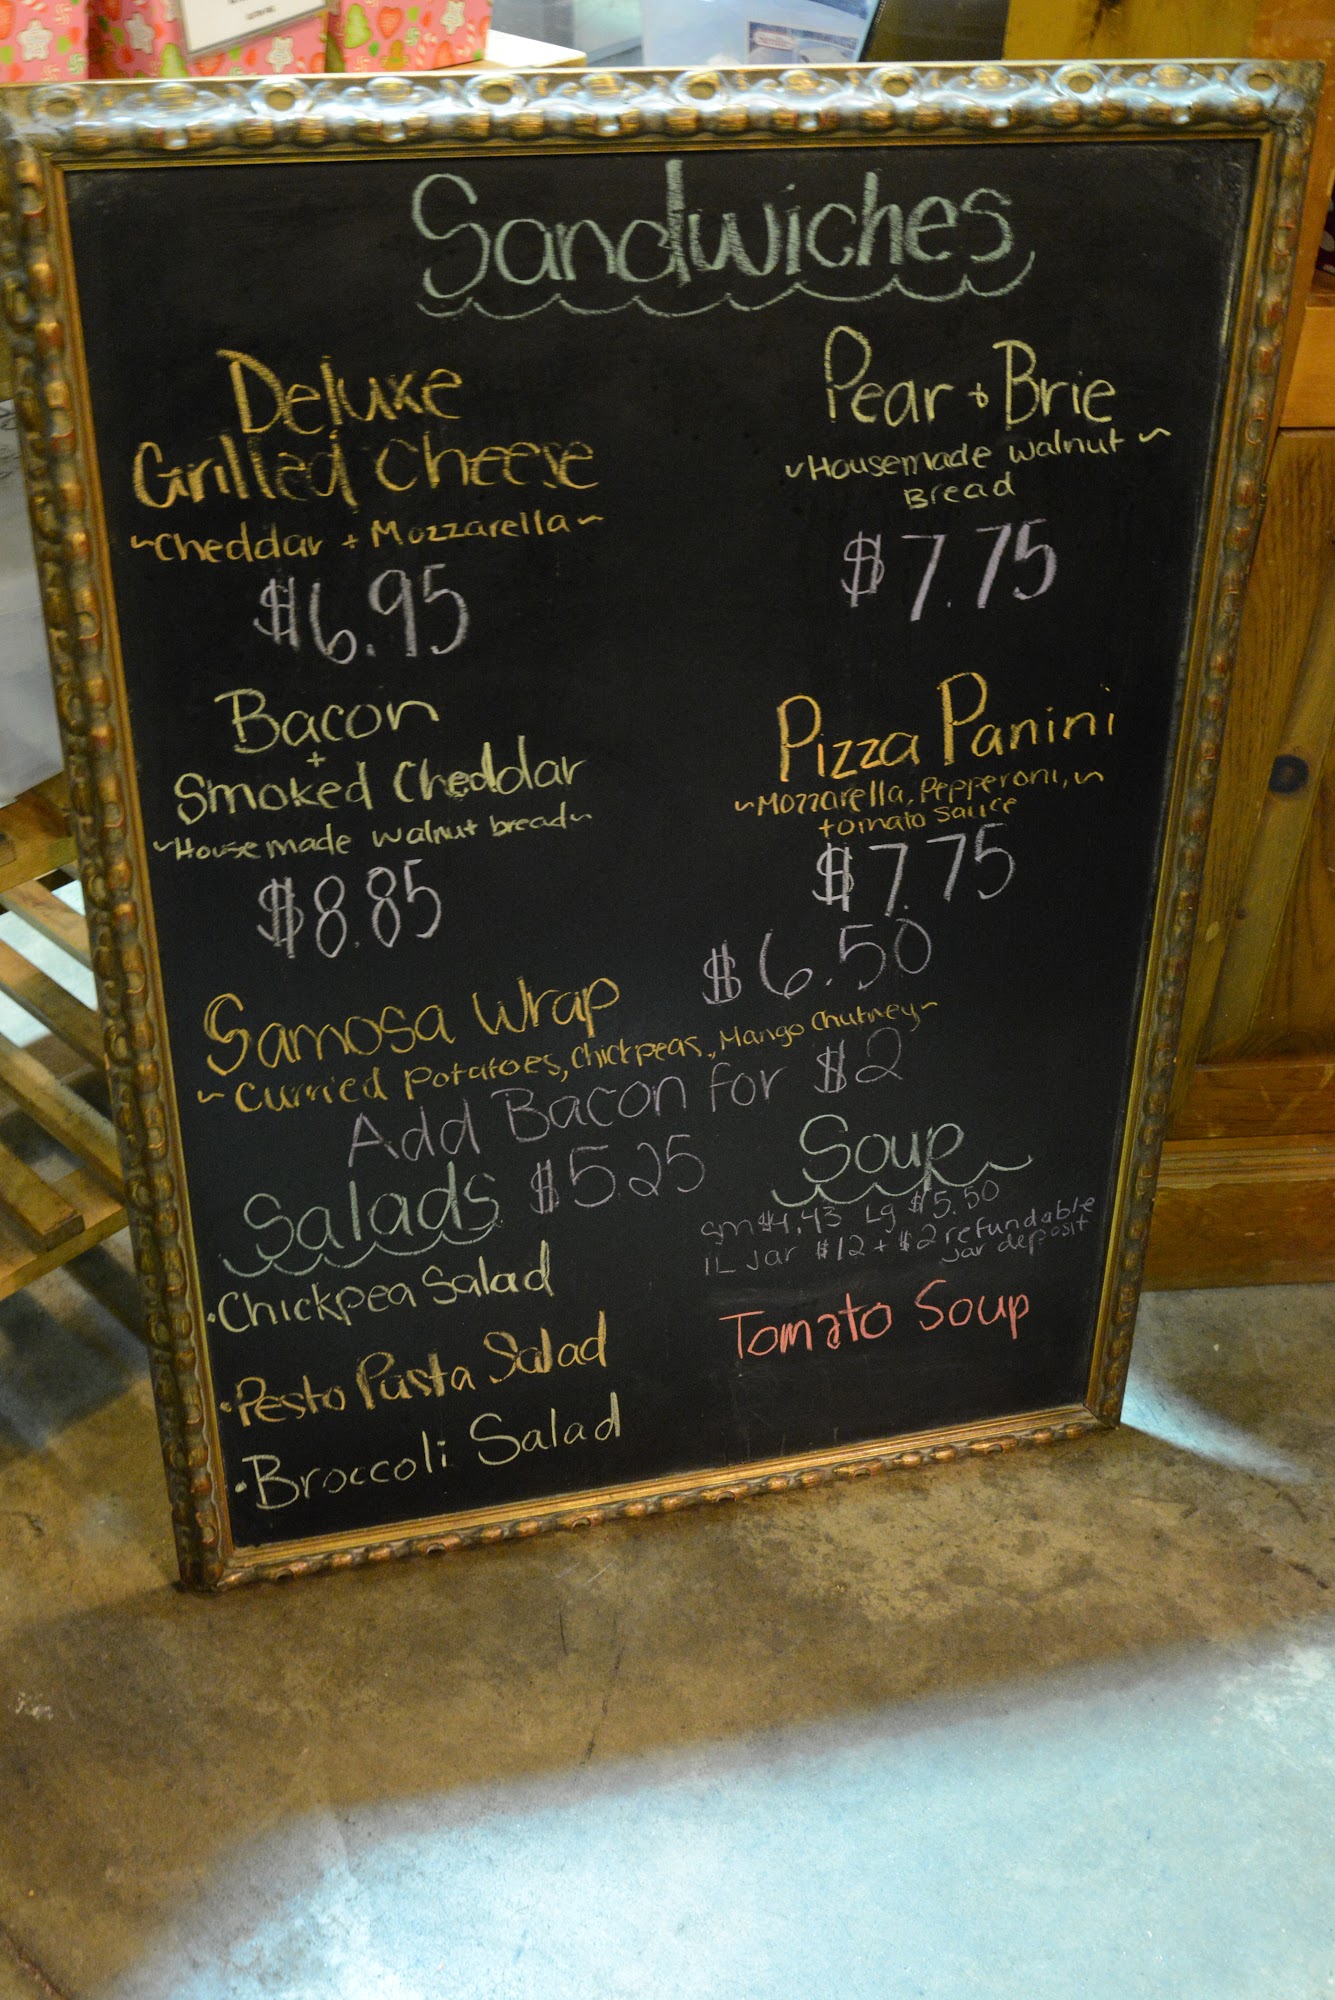 Sandwiches
Deluxe
Grilled Cheese
~Cheddar + Mozzarella~
$6.95
Pear + Brie
~Housemade Walnut~
Bread
$7.75
Bacon
+
Smoked Cheddar
~Housemade Walnut bread~
$8.85
Pizza Panini
~Mozzarella, Pepperoni,~
tomato sauce
$7.75
Samosa Wrap $6.50
~Curried Potatoes, Chickpeas, Mango Chutney~
Add Bacon for $2
Salads $5.25
·Chickpea Salad
·Pesto Pasta Salad
·Broccoli Salad
Soup
Sm $4.43 Lg $5.50
1L Jar $12 + $2 refundable
jar deposit
Tomato Soup